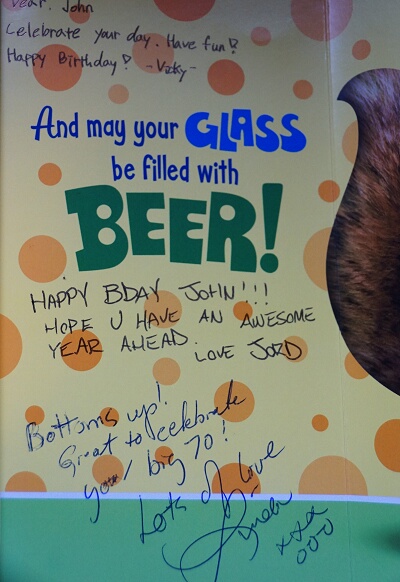 Dear. John
Celebrate your day. Have fun!
Happy Birthday! -Vicky-
And may your GLASS
be filled with
BEER!
HAPPY BDAY JOHN!!!
HOPE U HAVE AN AWESOME
YEAR AHEAD.
LOVE JORD
Bottoms up!
Great to celebrate
your big 70!
Lots of love
xxx
ooo